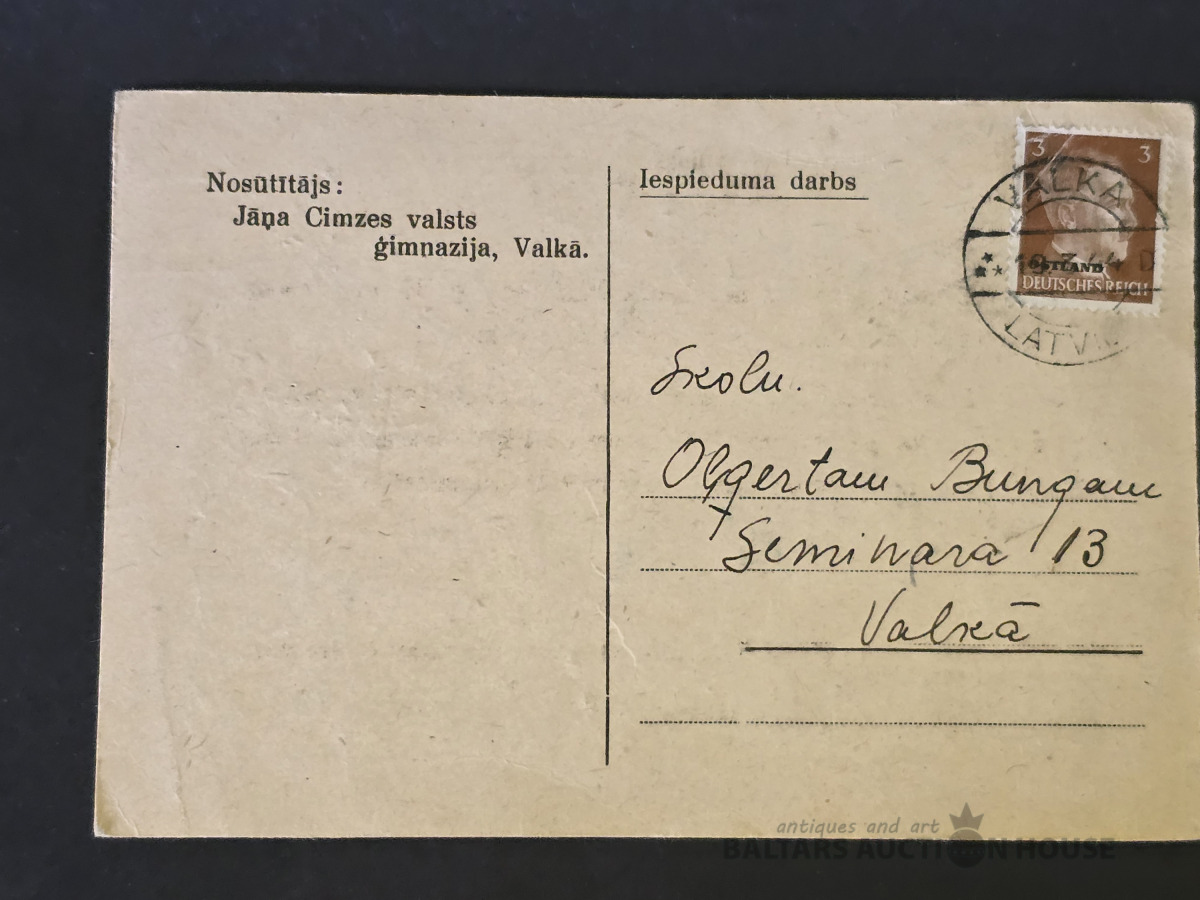 Nosūtītājs:
Jāņa Cimzes valsts
ģimnazija, Valkā.
Iespieduma darbs
3 3
OSTLAND
DEUTSCHES REICH
VALKA
D
Skolu.
Oļģertam Bungam
Seminara 13
Valkā
antiques and art
BALTARS AUCTION HOUSE